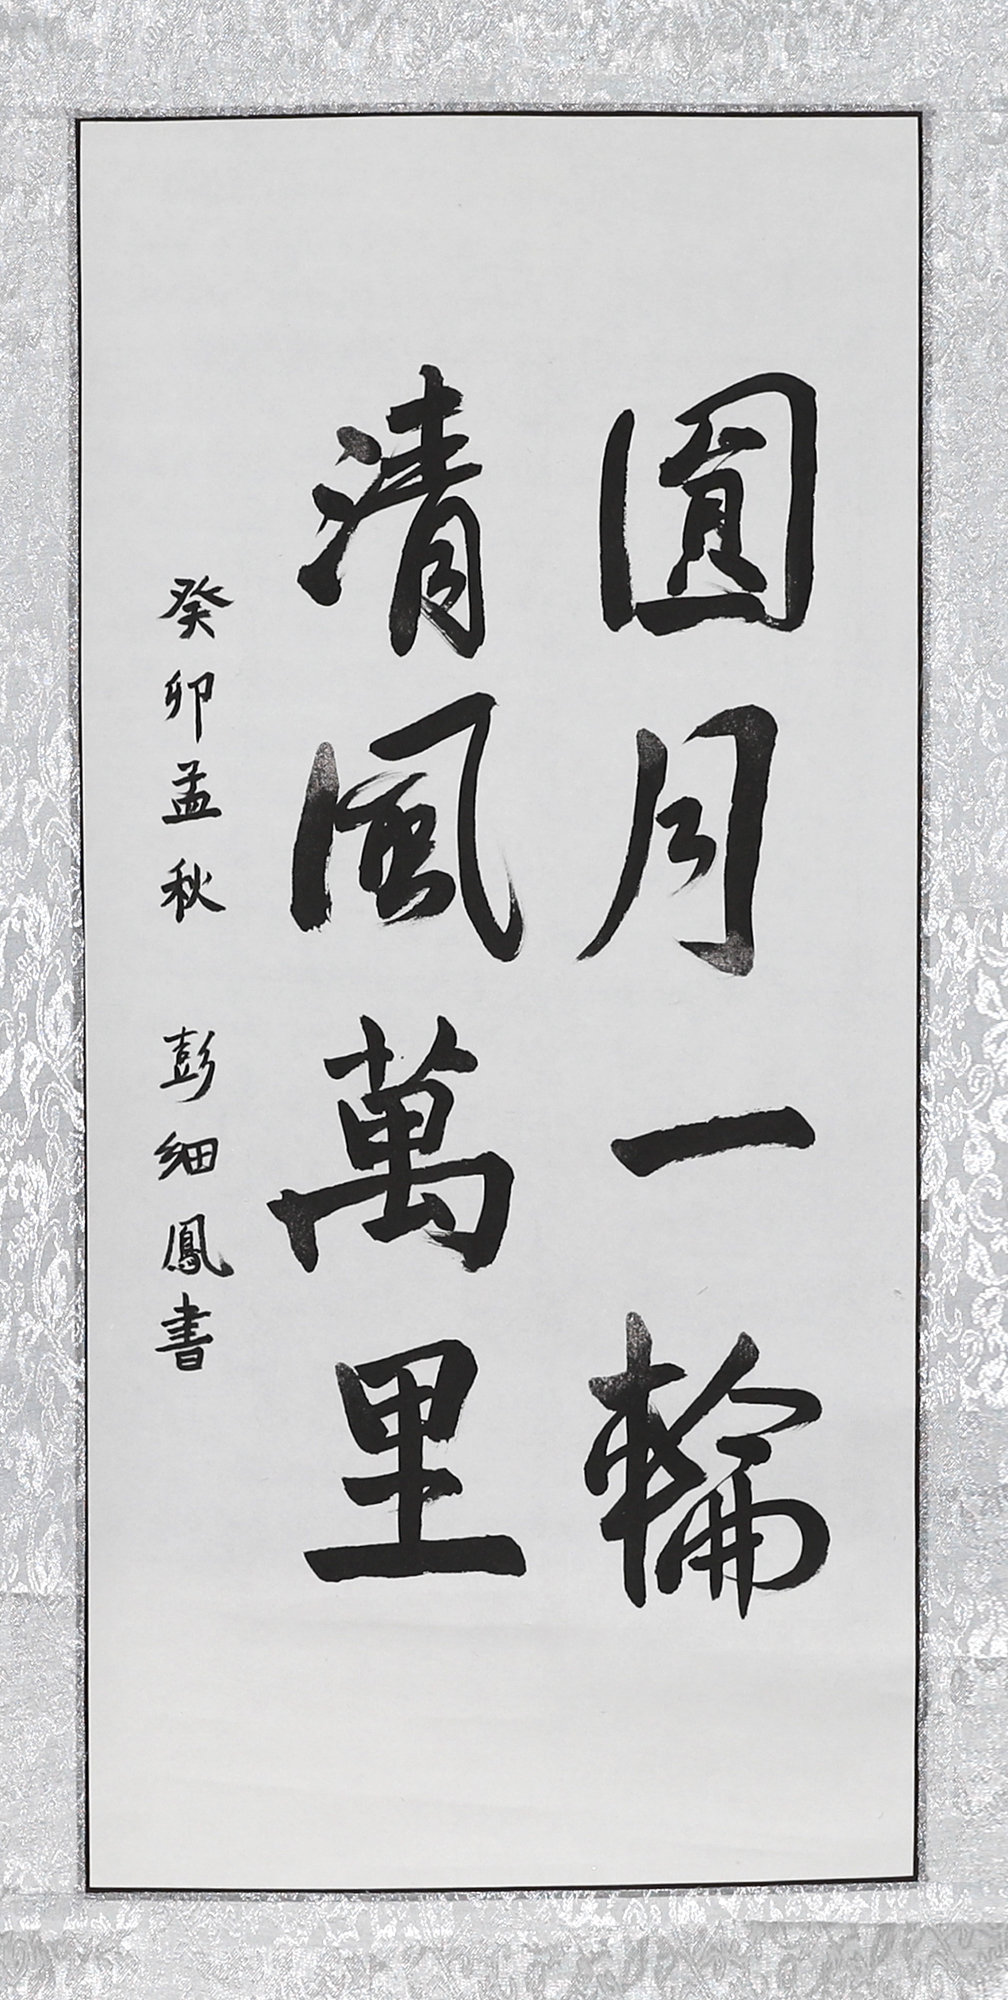 圓月一輪
清風萬里
癸卯孟秋 彭細鳳書